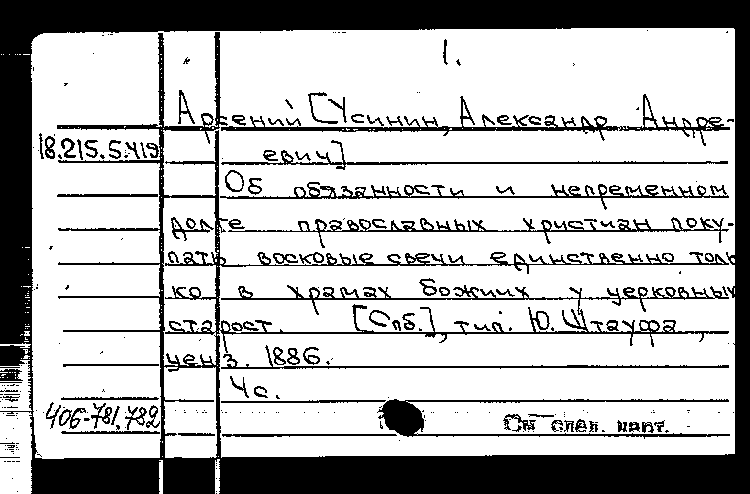 1.
Арсений [Усинин, Александр Андре-
18.215.5.419
евич]
Об обязанности и непременном
долге православных христиан поку-
пать восковые свечи единственно толь
ко в храмах божиих у церковных
старост. [Спб.], тип. Ю. Штауфа,
ценз. 1886.
4с.
406-781.782
См след. карт.